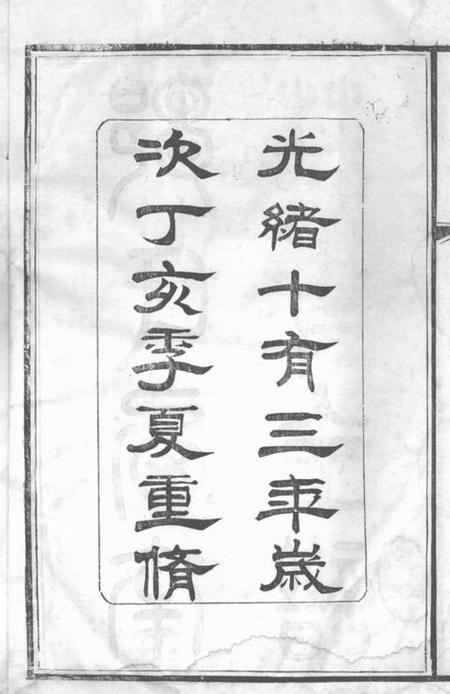 光緒十有三年歲
次丁亥季夏重脩